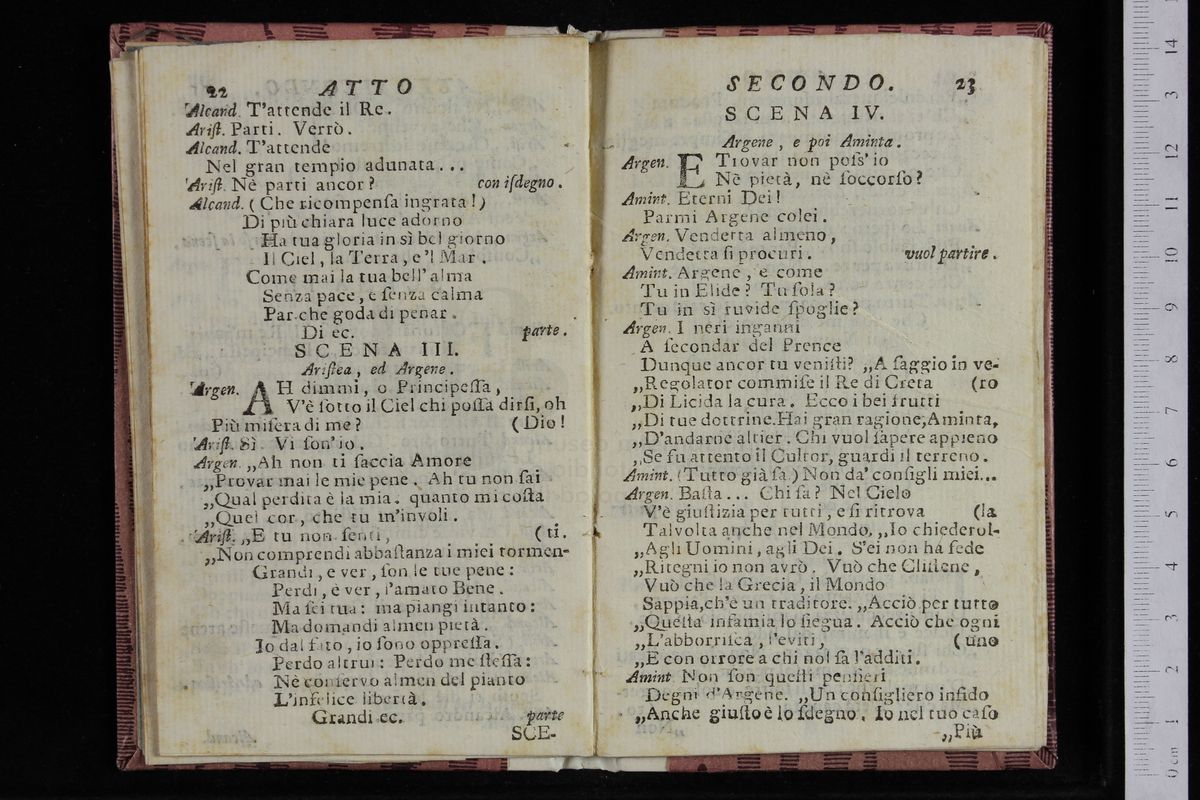 22 ATTO
Alcand. T'attende il Re.
Arist. Parti. Verrò.
Alcand. T'attende
Nel gran tempio adunata...
Arist. Nè parti ancor? con isdegno.
Alcand. (Che ricompensa ingrata!)
Di più chiara luce adorno
Ha tua gloria in sì bel giorno
Il Ciel, la Terra, e'l Mar.
Come mai la tua bell' alma
Senza pace, e senza calma
Par che goda di penar.
Di ec. parte.
SCENA III.
Aristea, ed Argene.
Argen. AH dimmi, o Principessa,
V'è sotto il Ciel chi possa dirsi, oh
Più misera di me? (Dio!
Arist. Sì. Vi son' io.
Argen. „Ah non ti faccia Amore
„Provar mai le mie pene. Ah tu non sai
„Qual perdita è la mia. quanto mi costa
„Quel cor, che tu m'involi.
Arist. „E tu non senti, (ti.
„Non comprendi abbastanza i miei tormen-
Grandi, e ver, son le tue pene:
Perdi, è ver, l'amato Bene.
Ma sei tua: ma piangi intanto:
Ma domandi almen pietà.
Io dal fato, io sono oppressa.
Perdo altrui: Perdo me stessa:
Nè conservo almen del pianto
L'infelice libertà.
Grandi ec. parte
SCE-
SECONDO. 23
SCENA IV.
Argene, e poi Aminta.
Argen. E Trovar non poss' io
Nè pietà, nè soccorso?
Amint. Eterni Dei!
Parmi Argene colei.
Argen. Vendetta almeno,
Vendetta si procuri. vuol partire.
Amint. Argene, e come
Tu in Elide? Tu sola?
Tu in sì ruvide spoglie?
Argen. I neri inganni
A secondar del Prence
Dunque ancor tu venisti? „A saggio in ve-
„Regolator commise il Re di Creta (ro
„Di Licida la cura. Ecco i bei frutti
„Di tue dottrine. Hai gran ragione, Aminta,
„D'andarne altier. Chi vuol sapere appieno
„Se fu attento il Cultor, guardi il terreno.
Amint. (Tutto già sa.) Non da' consigli miei...
Argen. Basta... Chi sa? Nel Cielo
V'è giustizia per tutti, e si ritrova (la
Talvolta anche nel Mondo. „Io chiederol-
„Agli Uomini, agli Dei. S'ei non hà fede
„Ritegni io non avrò. Vuò che Clistene,
Vuò che la Grecia, il Mondo
Sappia, ch'è un traditore. „Acciò per tutto
„Questa infamia lo siegua. Acciò che ogni
„L'abborrisca, l'eviti, (uno
„E con orrore a chi nol sa l'additi.
Amint. Non son questi pensieri
Degni d'Argene. „Un consigliero infido
„Anche giusto è lo sdegno. Io nel tuo caso
„Più